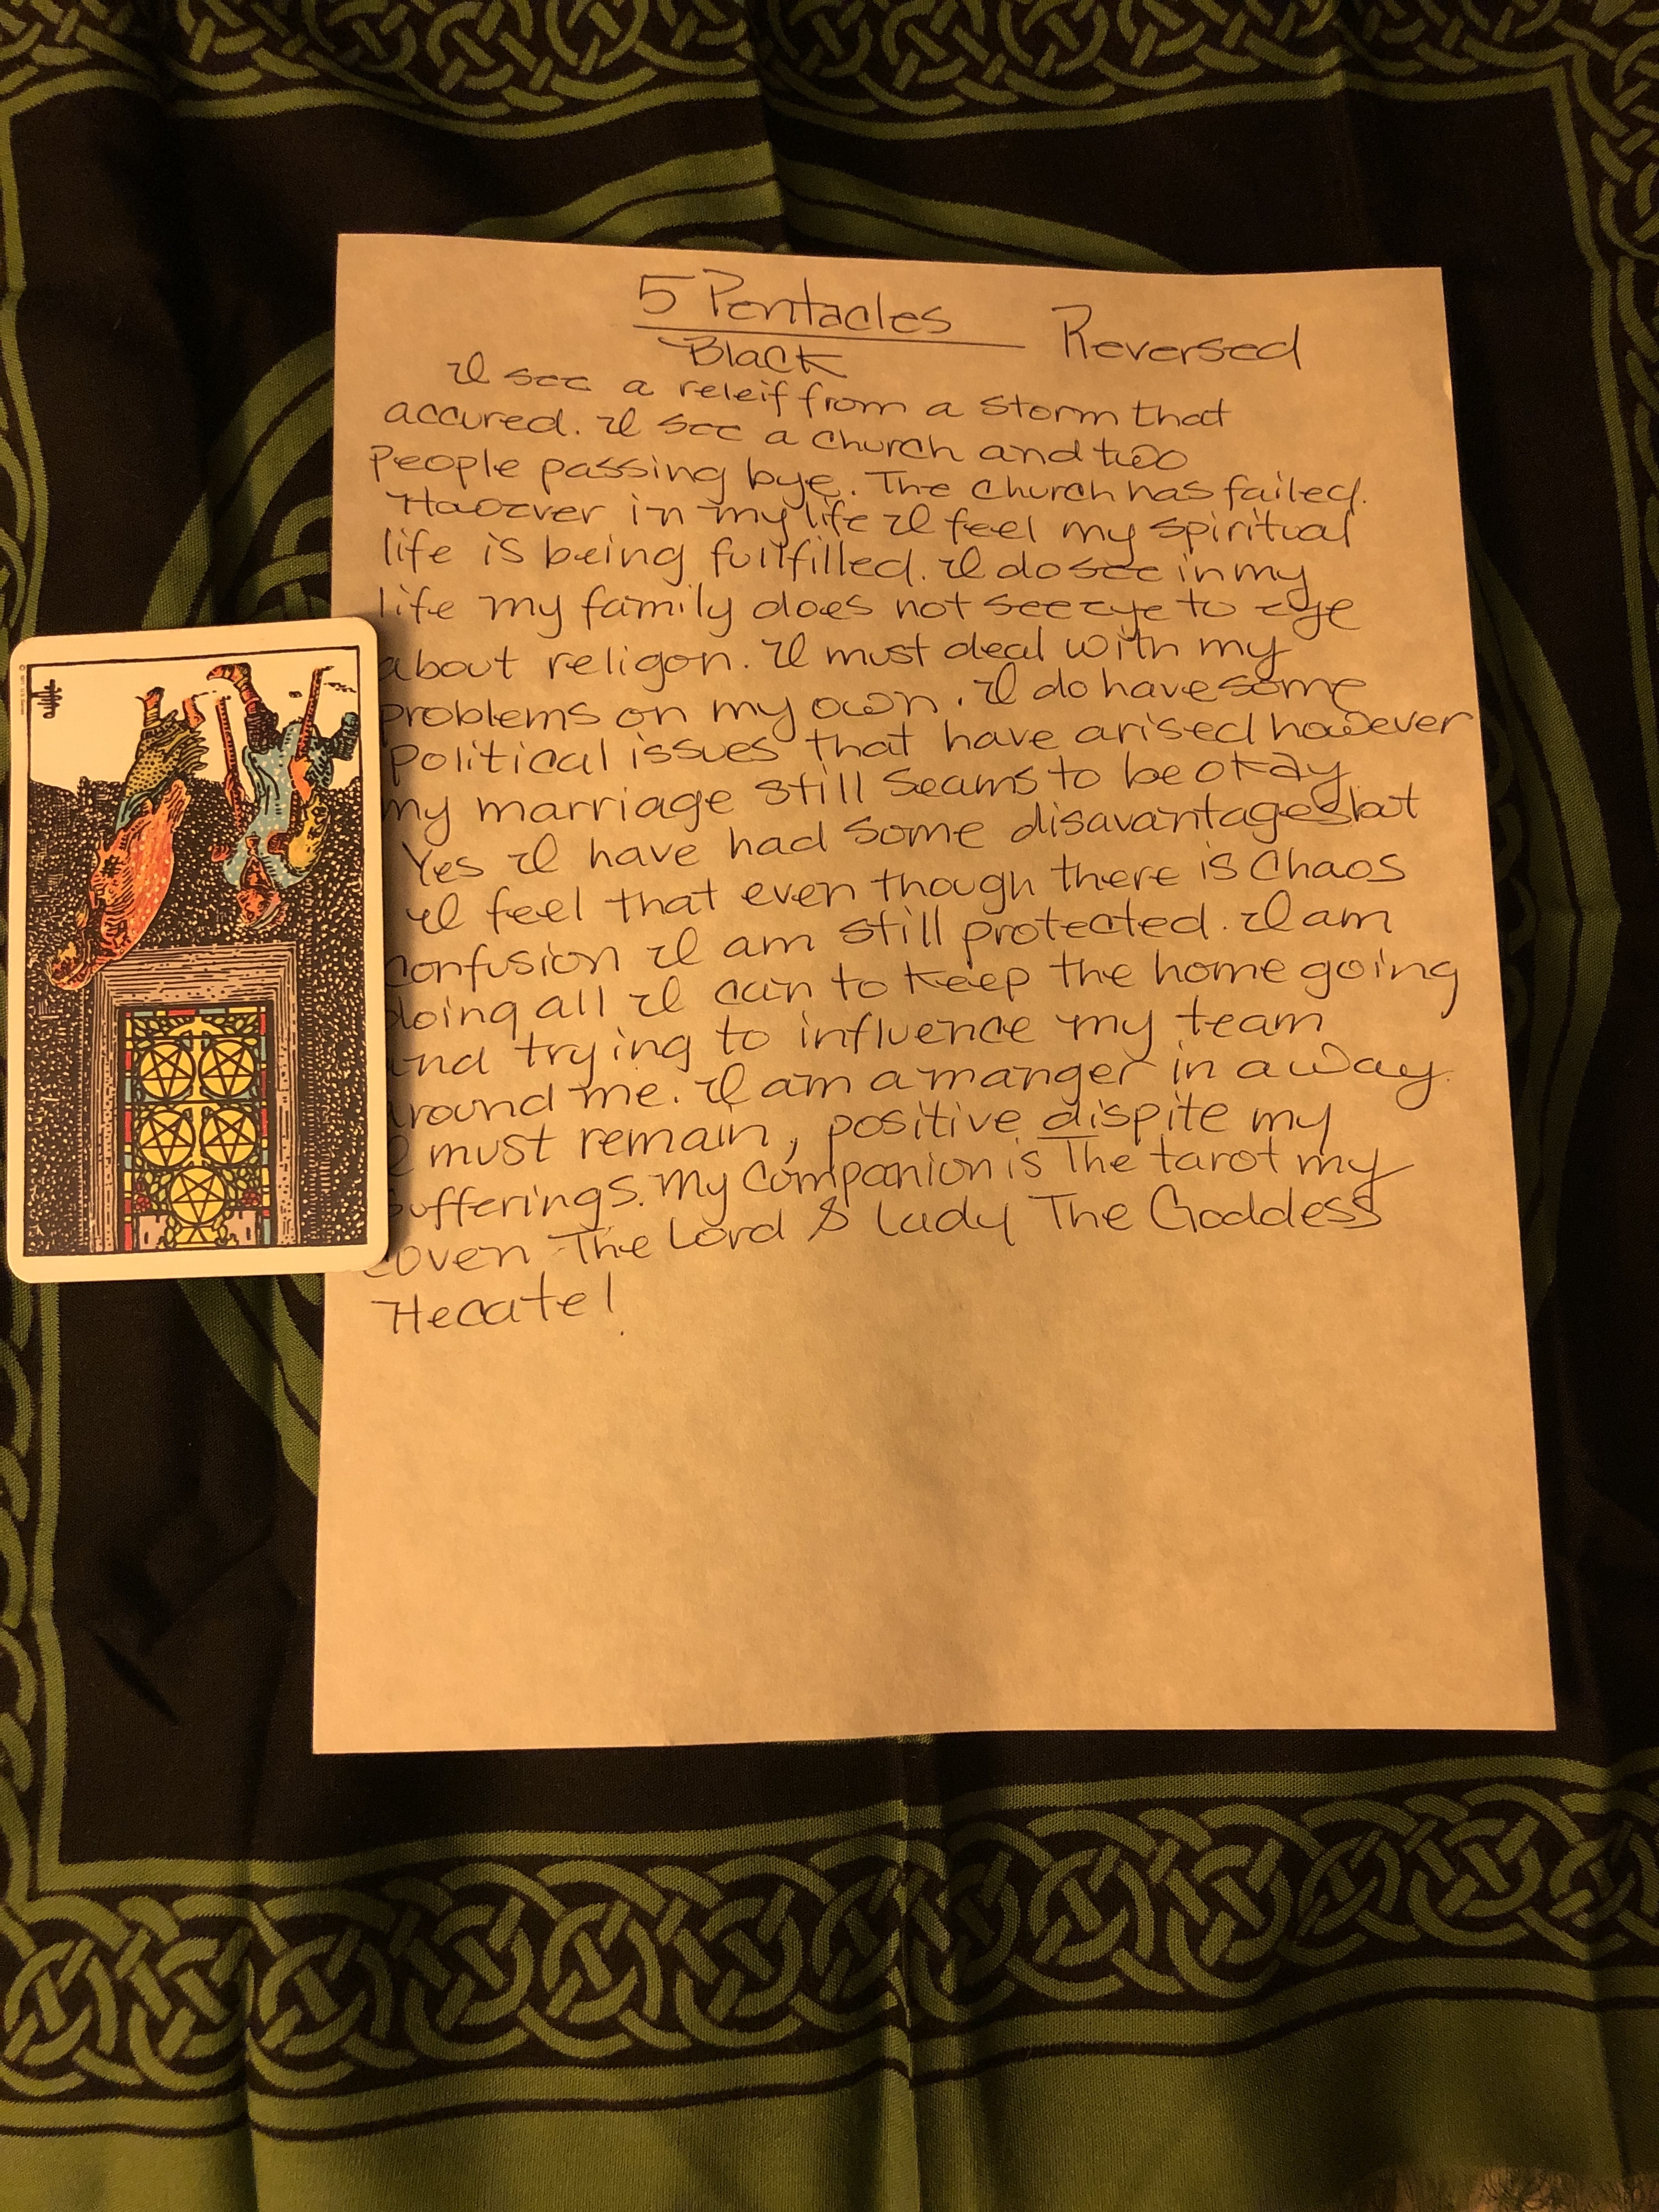 5 Pentacles Reversed
Black
I see a releif from a storm that
accured. I see a church and two
People passing bye. The church has failed.
Haoever in my life I feel my spiritual
life is being fullfilled. I do see in my
life my family does not see eye to eye
about religon. I must deal with my
problems on my own. I do have some
political issues that have arised however
my marriage still seams to be okay
Yes I have had some disavantages but
I feel that even though there is Chaos
confusion I am still protected. I am
doing all I can to keep the home going
and trying to influence my team
around me. I am a manger in a way.
I must remain, positive dispite my
sufferings. My companion is The tarot my
coven The Lord & Lady The Goddess
Hecate!